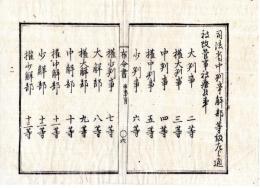 司法省中判事解部等級左ノ通
被改定事被仰出事
大判事 二等
權大判事 三等
中判事 四等
權中判事 五等
少判事 六等
布令書
權少判事 七等
大解部 八等
權大解部 九等
中解部 十等
權中解部 十一等
少解部 十二等
權少解部 十三等